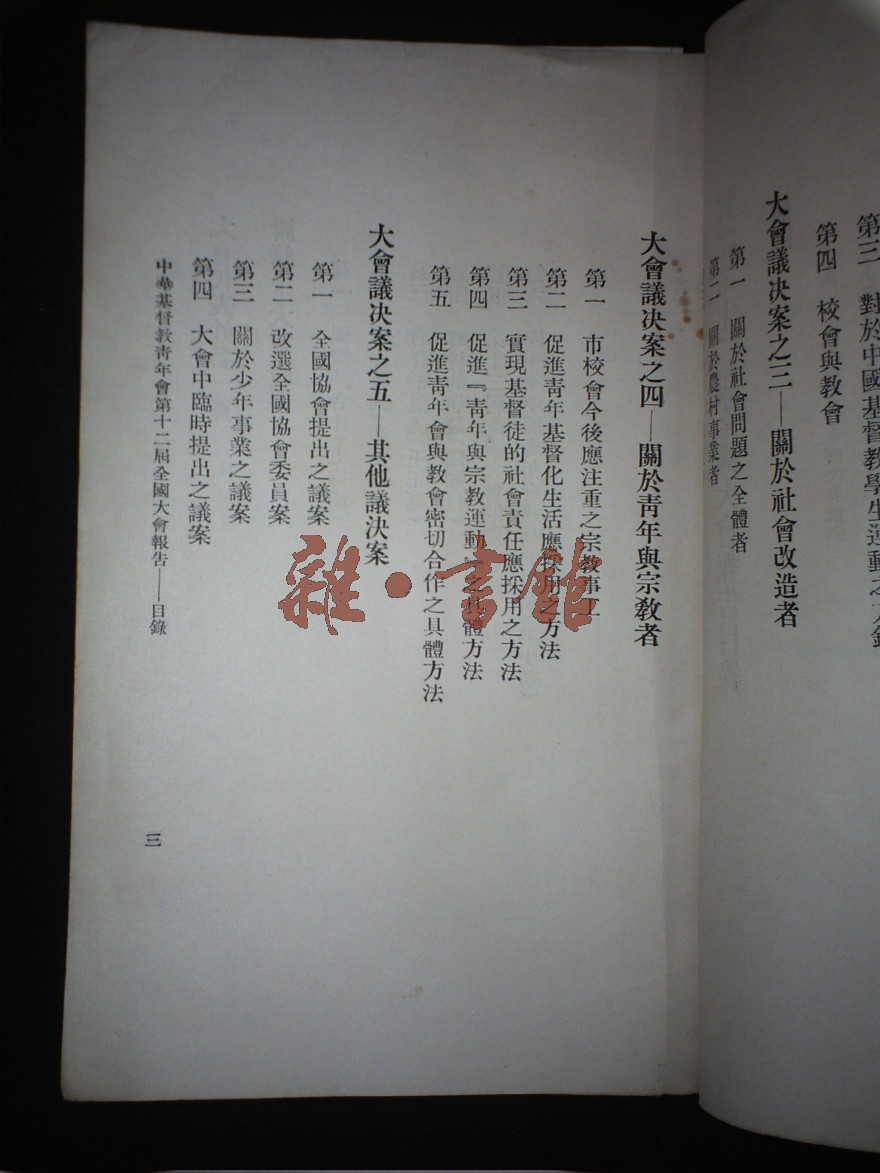 第三　對於中國基督教學生運動之方針
第四　校會與教會
大會議決案之三——關於社會改造者
第一　關於社會問題之全體者
第二　關於農村事業者
大會議決案之四——關於青年與宗教者
第一　市校會今後應注重之宗教事工
第二　促進青年基督化生活應採用之方法
第三　實現基督徒的社會責任應採用之方法
第四　促進『青年與宗教運動』之具體方法
第五　促進青年會與教會密切合作之具體方法
大會議決案之五——其他議決案
第一　全國協會提出之議案
第二　改選全國協會委員案
第三　關於少年事業之議案
第四　大會中臨時提出之議案
中華基督教青年會第十二屆全國大會報告——目錄
三
雜·書館